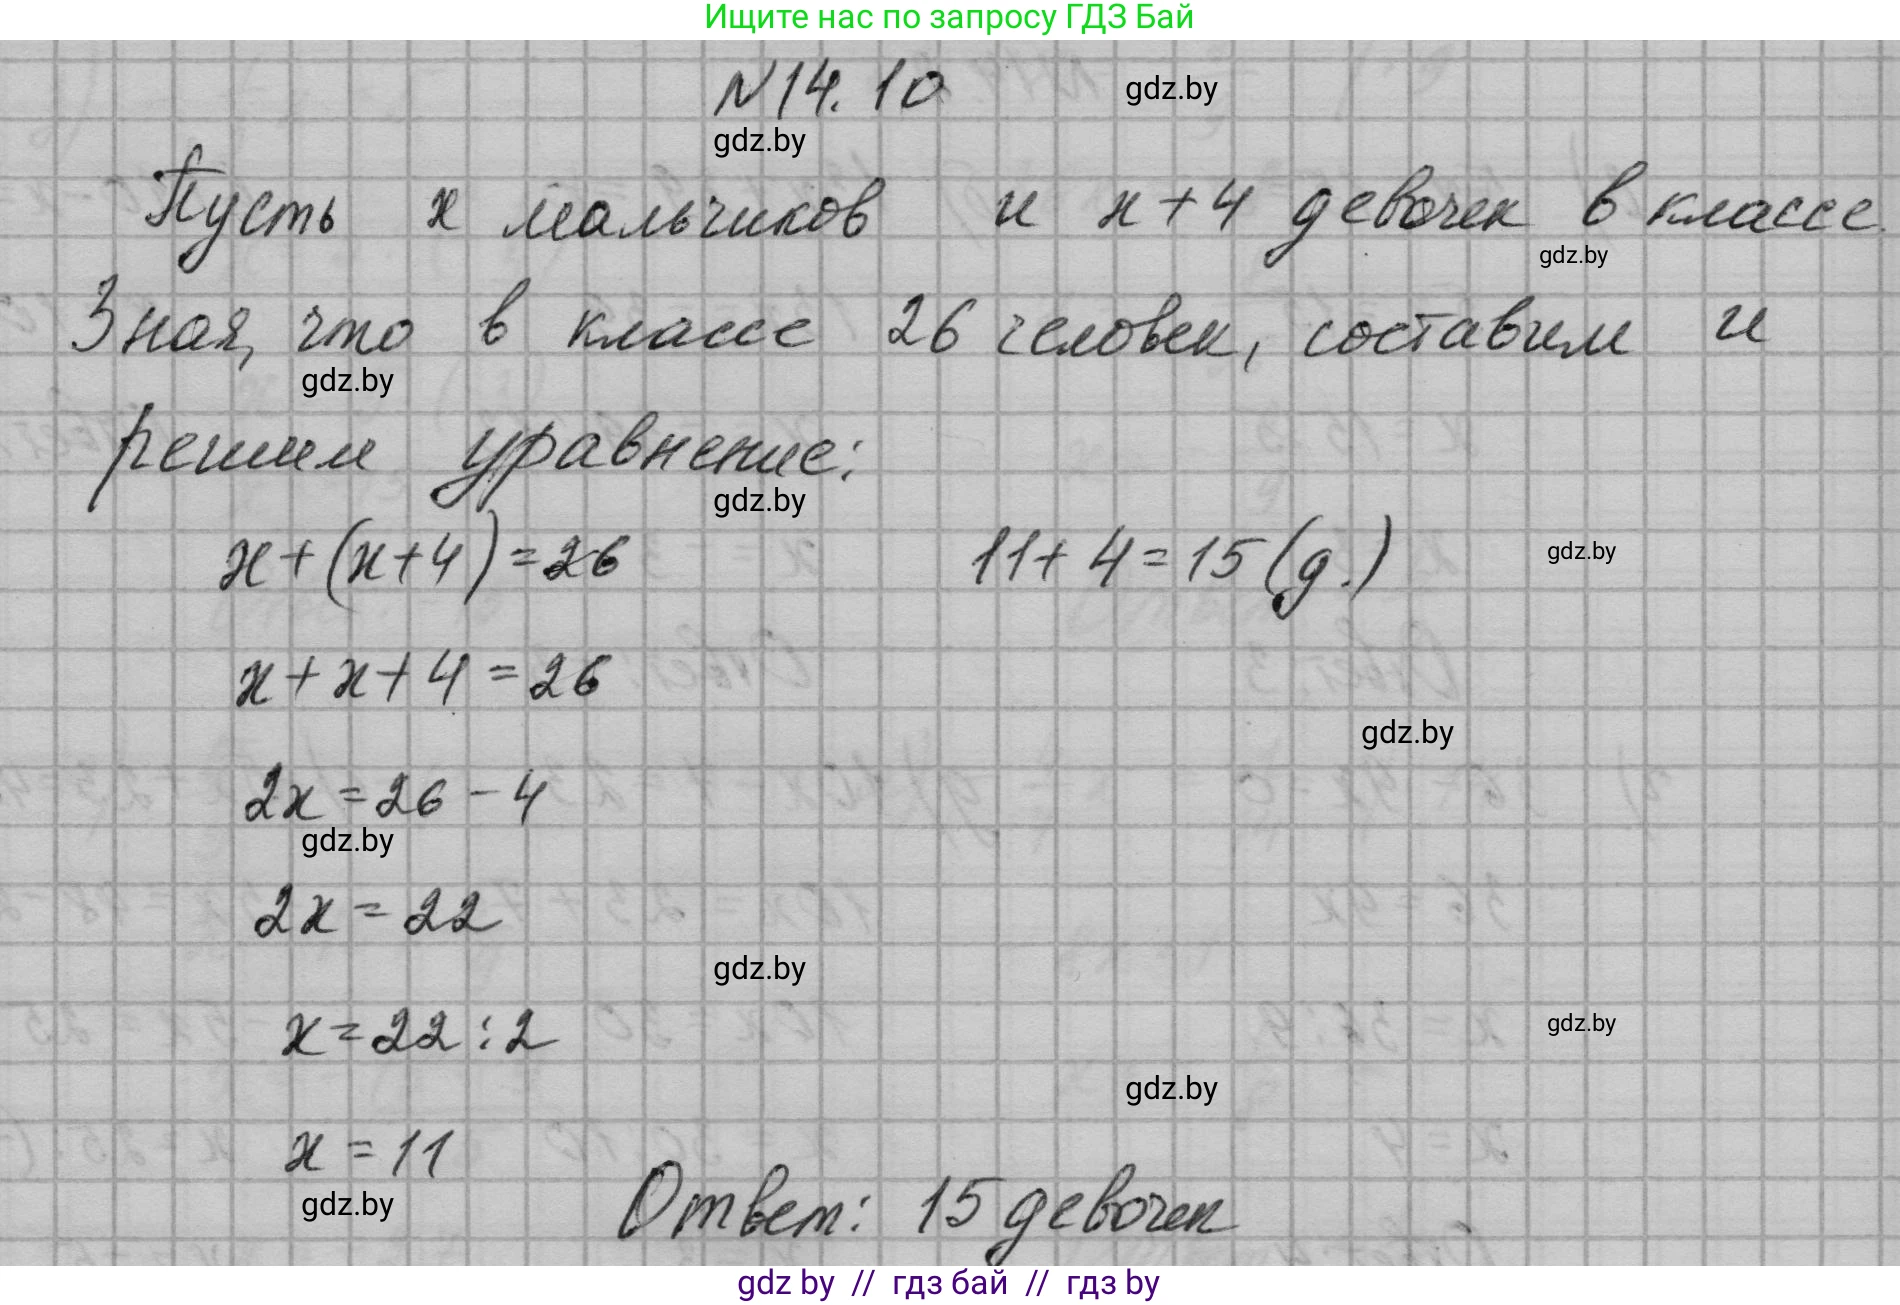 Ищите нас по запросу ГДЗ Бай
N14.10
gdz.by
gdz.by
Пусть x мальчиков и x+4 девочек в классе.
gdz.by
Зная, что в классе 26 человек, составим и
gdz.by
решим уравнение:
gdz.by
x+(x+4)=26 11+4=15(д.)
gdz.by
x+x+4=26
gdz.by
2x=26-4
gdz.by
2x=22
gdz.by
x=22:2
gdz.by
gdz.by
x=11
gdz.by
Ответ: 15 девочек
gdz by // гдз бай // гдз by